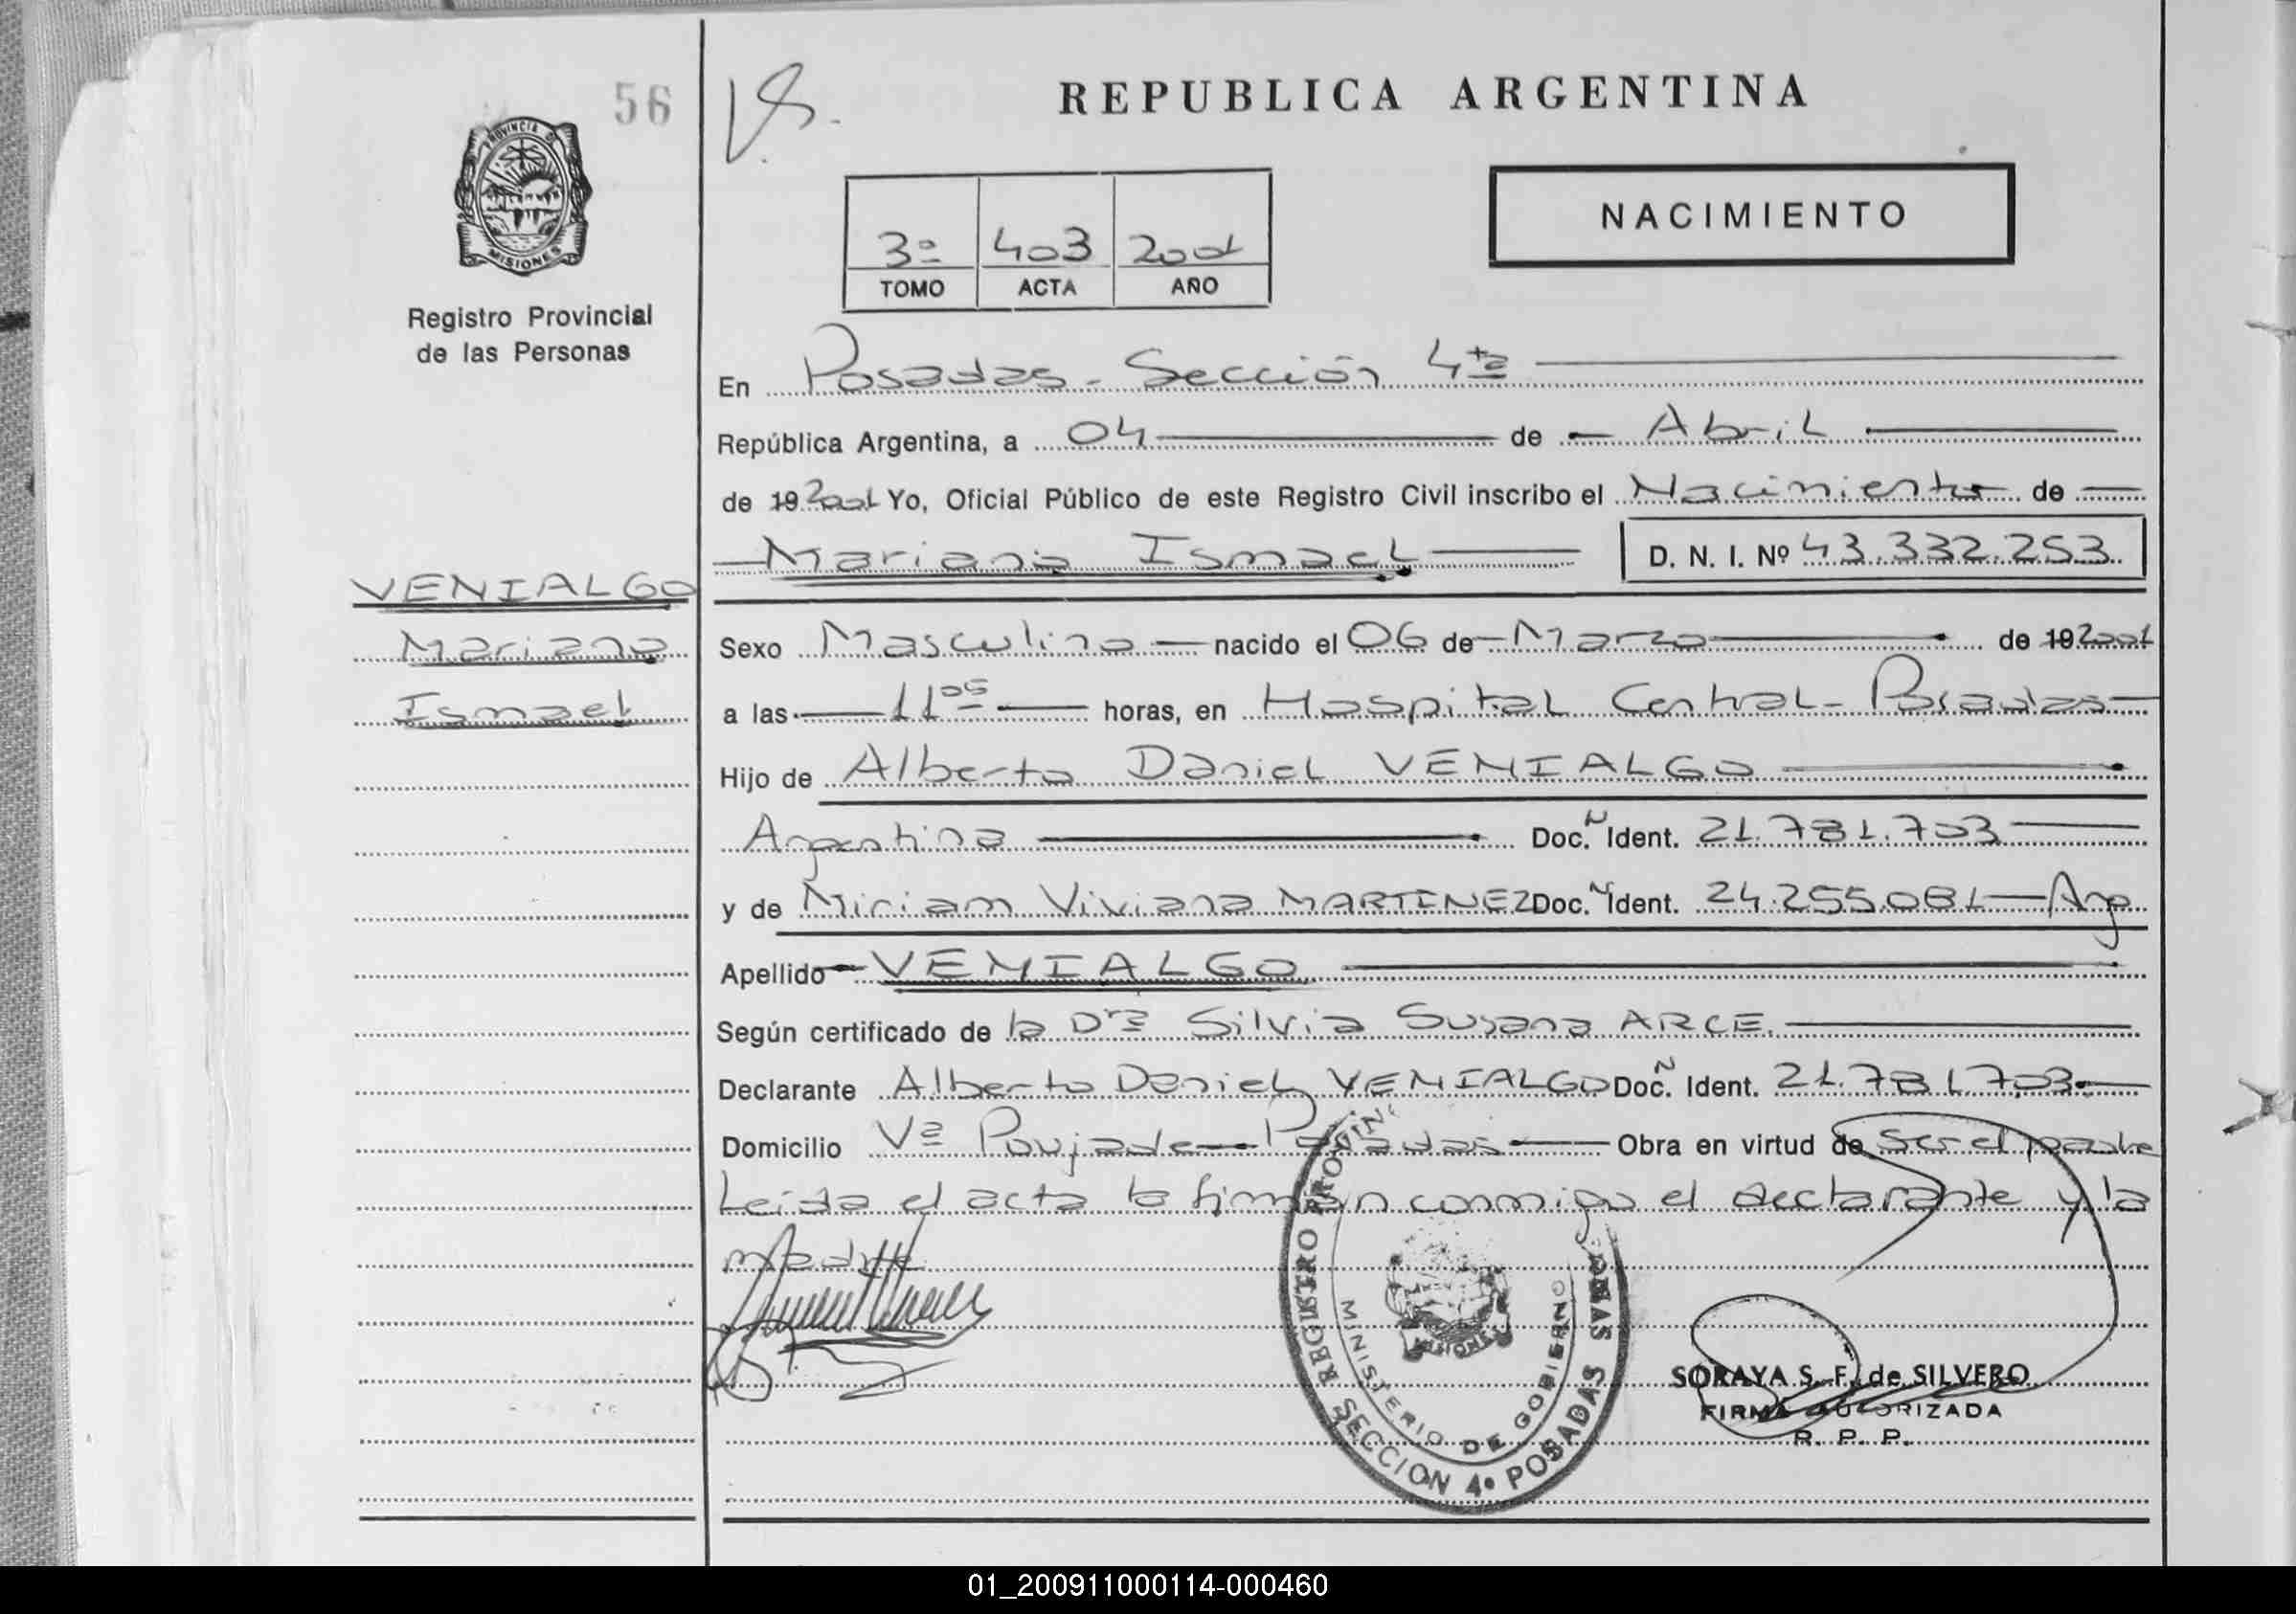 56
V.S.
REPUBLICA ARGENTINA
PROVINCIA DE
MISIONES
Registro Provincial
de las Personas
3º 403 2001
TOMO ACTA AÑO
NACIMIENTO
En Posadas - Sección 4ta
República Argentina, a 04 de Abril
de 19 2001 Yo, Oficial Público de este Registro Civil inscribo el Nacimiento de
Mariano Ismael D. N. I. Nº 43.332.253
VENIALGO
Mariano
Ismael
Sexo Masculino nacido el 06 de Marzo de 19 2001
a las 11 05 horas, en Hospital Central - Posadas
Hijo de Alberto Daniel VENIALGO
Argentina Doc. N Ident. 21.781.703
y de Miriam Viviana MARTINEZ Doc. N Ident. 24.255.081 - Arg
Apellido VENIALGO
Según certificado de la Dra Silvia Susana ARCE.
Declarante Alberto Daniel VENIALGO Doc. N Ident. 21.781.703
Domicilio Vª Poujade - Posadas Obra en virtud de ser el padre
Leida el acta la firman conmigo el declarante y la
madre
REGISTRO PROVINC
SECCION 4º POSADAS
MINISTERIO DE GOBIERNO
SORAYA S. F. de SILVERO
FIRMA AUTORIZADA
R. P. P.
01_200911000114-000460